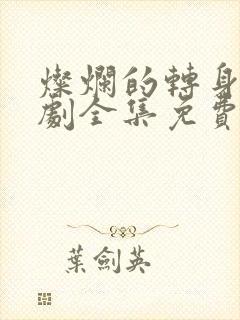 燦爛的轉身
劇全集免費
葉劍英